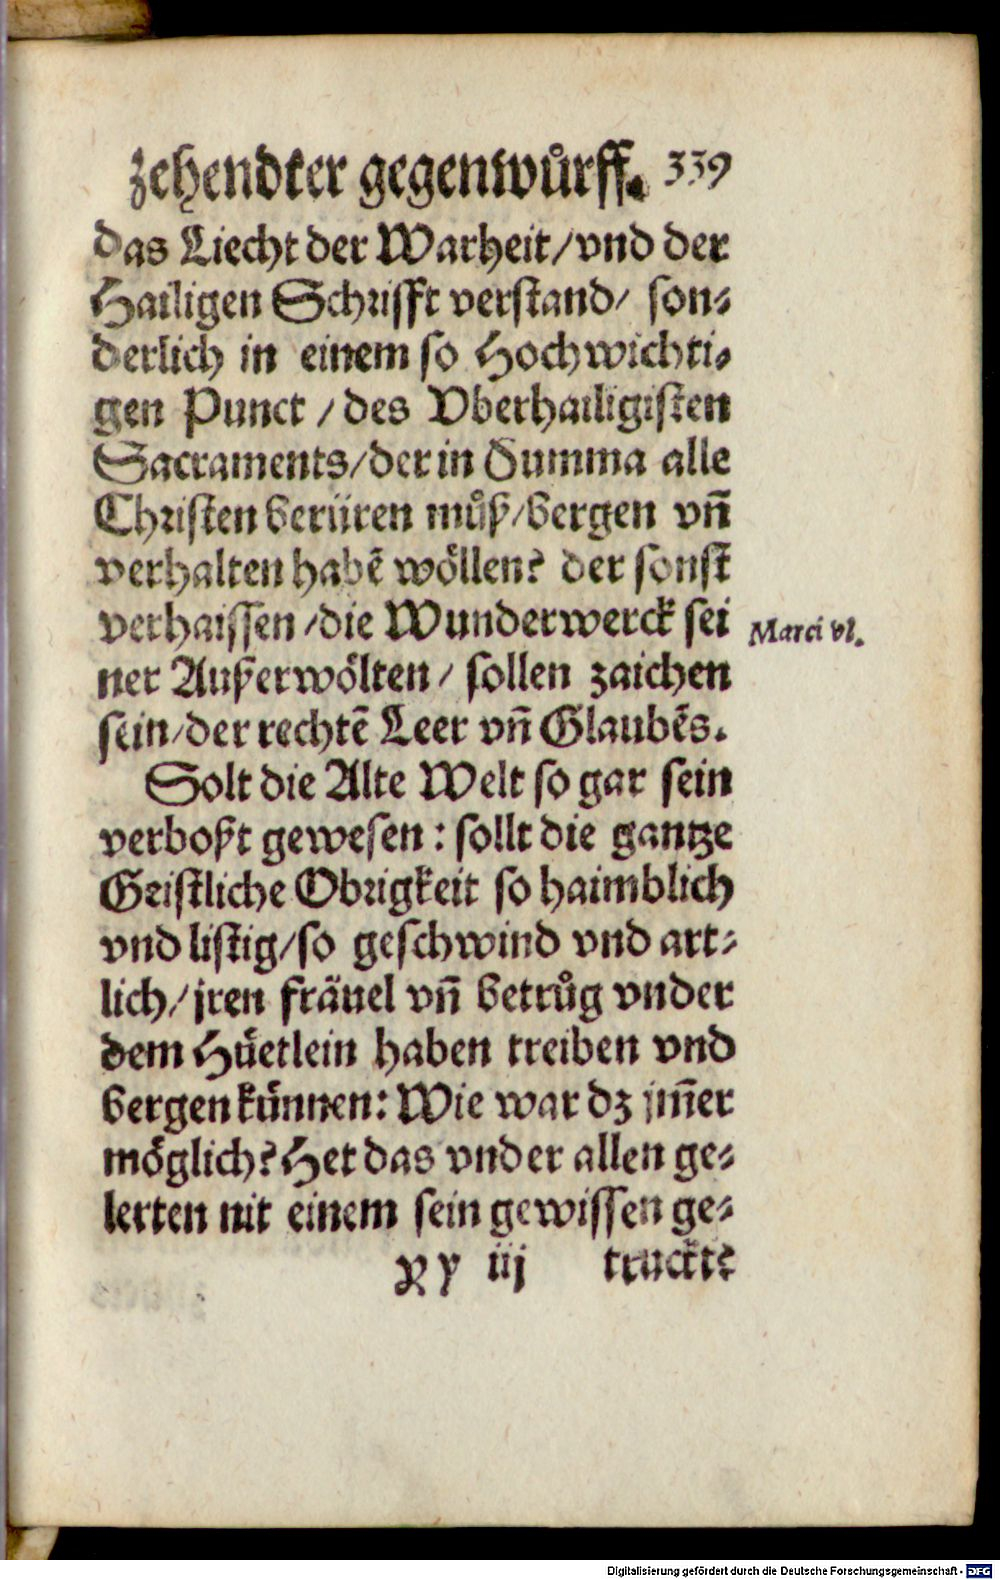 zehendter gegenwůrff. 339
das Liecht der Warheit/vnd der
Hailigen Schrifft verstand/ son-
derlich in einem so Hochwichti-
gen Punct /des Vberhailigisten
Sacraments/der in Summa alle
Christen berüren můß/bergen vñ
verhalten habẽ wöllen? der sonst
verhaissen/die Wunderwerck sei
Marci vl.
ner Außerwölten/ sollen zaichen
sein/der rechtẽ Leer vñ Glaubẽs.
Solt die Alte Welt so gar sein
verboßt gewesen: sollt die gantze
Geistliche Obrigkeit so haimblich
vnd listig/so geschwind vnd art-
lich/jren fräuel vñ betrůg vnder
dem Hüetlein haben treiben vnd
bergen künnen: Wie war dz jm̃er
möglich? Het das vnder allen ge-
lerten nit einem sein gewissen ge-
iij truckte
Digitalisierung gefördert durch die Deutsche Forschungsgemeinschaft - DFG